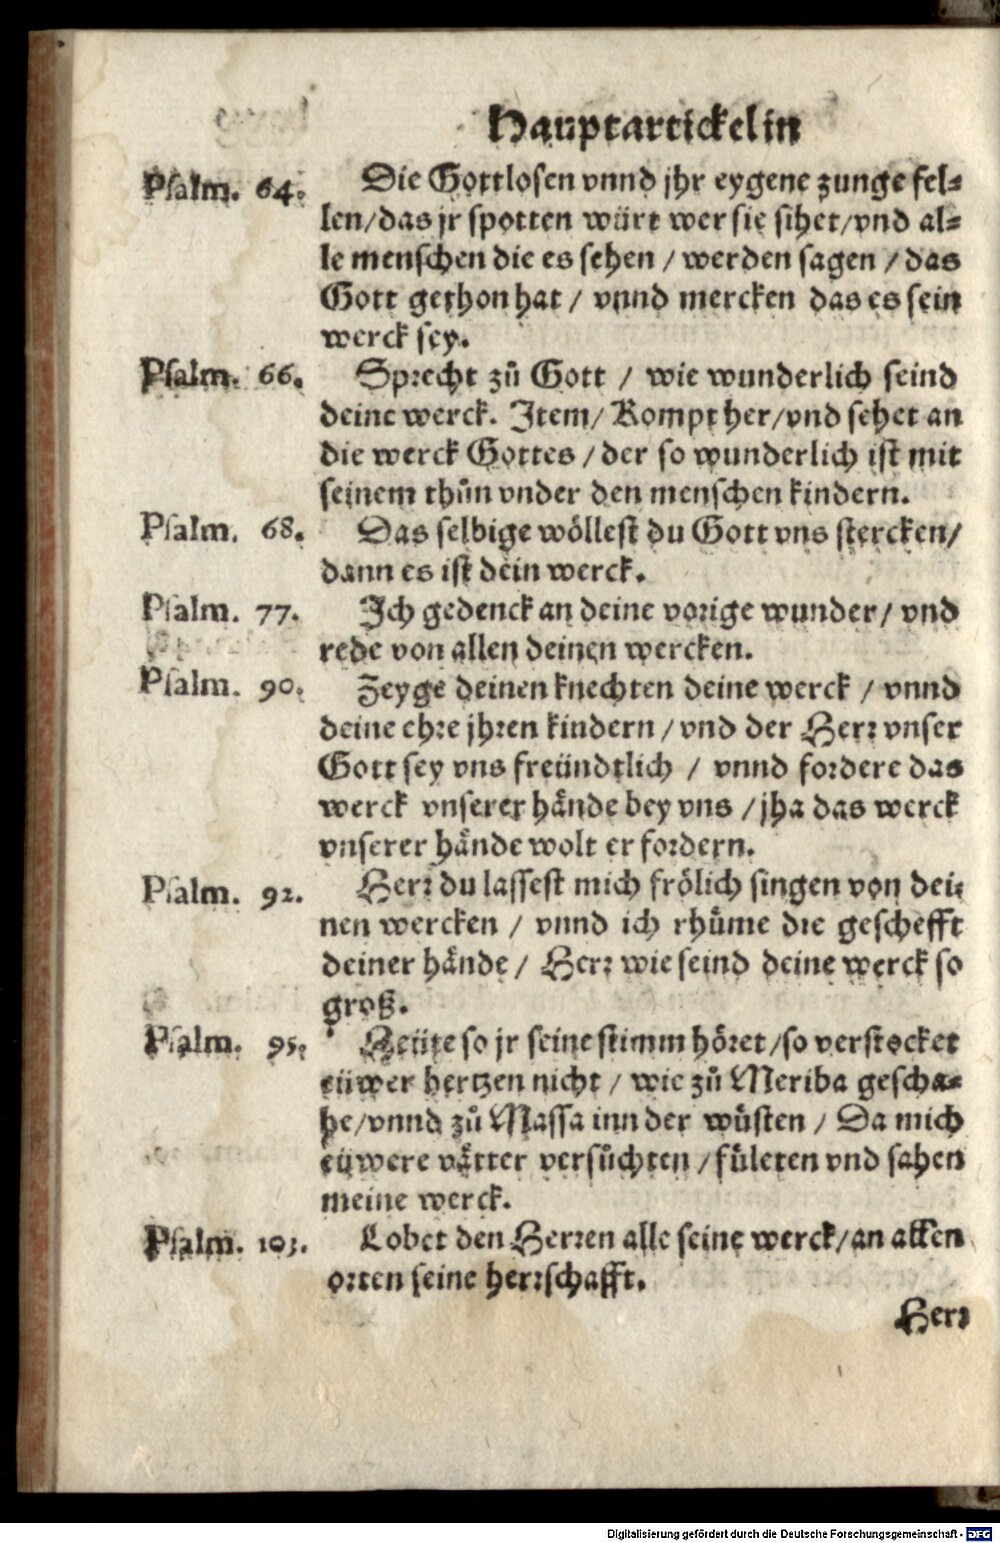 Hauptartickel in
Psalm. 64. Die Gottlosen vnnd jhr eygene zunge fel⸗
len/das jr spotten würt wer sie sihet/vnd al⸗
le menschen die es sehen / werden sagen / das
Gott gethon hat / vnnd mercken das es sein
werck sey.
Psalm. 66. Sprecht zů Gott / wie wunderlich seind
deine werck. Item/ Kompt her/vnd sehet an
die werck Gottes / der so wunderlich ist mit
seinem thůn vnder den menschen kindern.
Psalm. 68. Das selbige wöllest du Gott vns stercken/
dann es ist dein werck.
Psalm. 77. Ich gedenck an deine vorige wunder/ vnd
rede von allen deinen wercken.
Psalm. 90. Zeyge deinen knechten deine werck / vnnd
deine ehre jhren kindern / vnd der Herr vnser
Gott sey vns freündtlich / vnnd fordere das
werck vnserer hände bey vns / jha das werck
vnserer hände wolt er fordern.
Psalm. 92. Herr du lassest mich frölich singen von dei⸗
nen wercken / vnnd ich rhüme die geschefft
deiner hände / Herr wie seind deine werck so
groß.
Psalm. 95. Heüte so jr seine stimm höret /so verstocket
eüwer hertzen nicht / wie zů Meriba gescha⸗
he/vnnd zů Massa inn der wüsten / Da mich
eüwere vätter versůchten / fületen vnd sahen
meine werck.
Psalm. 103. Lobet den Herren alle seine werck/an allen
orten seine herrschafft.
Herr
Digitalisierung gefördert durch die Deutsche Forschungsgemeinschaft - DFG